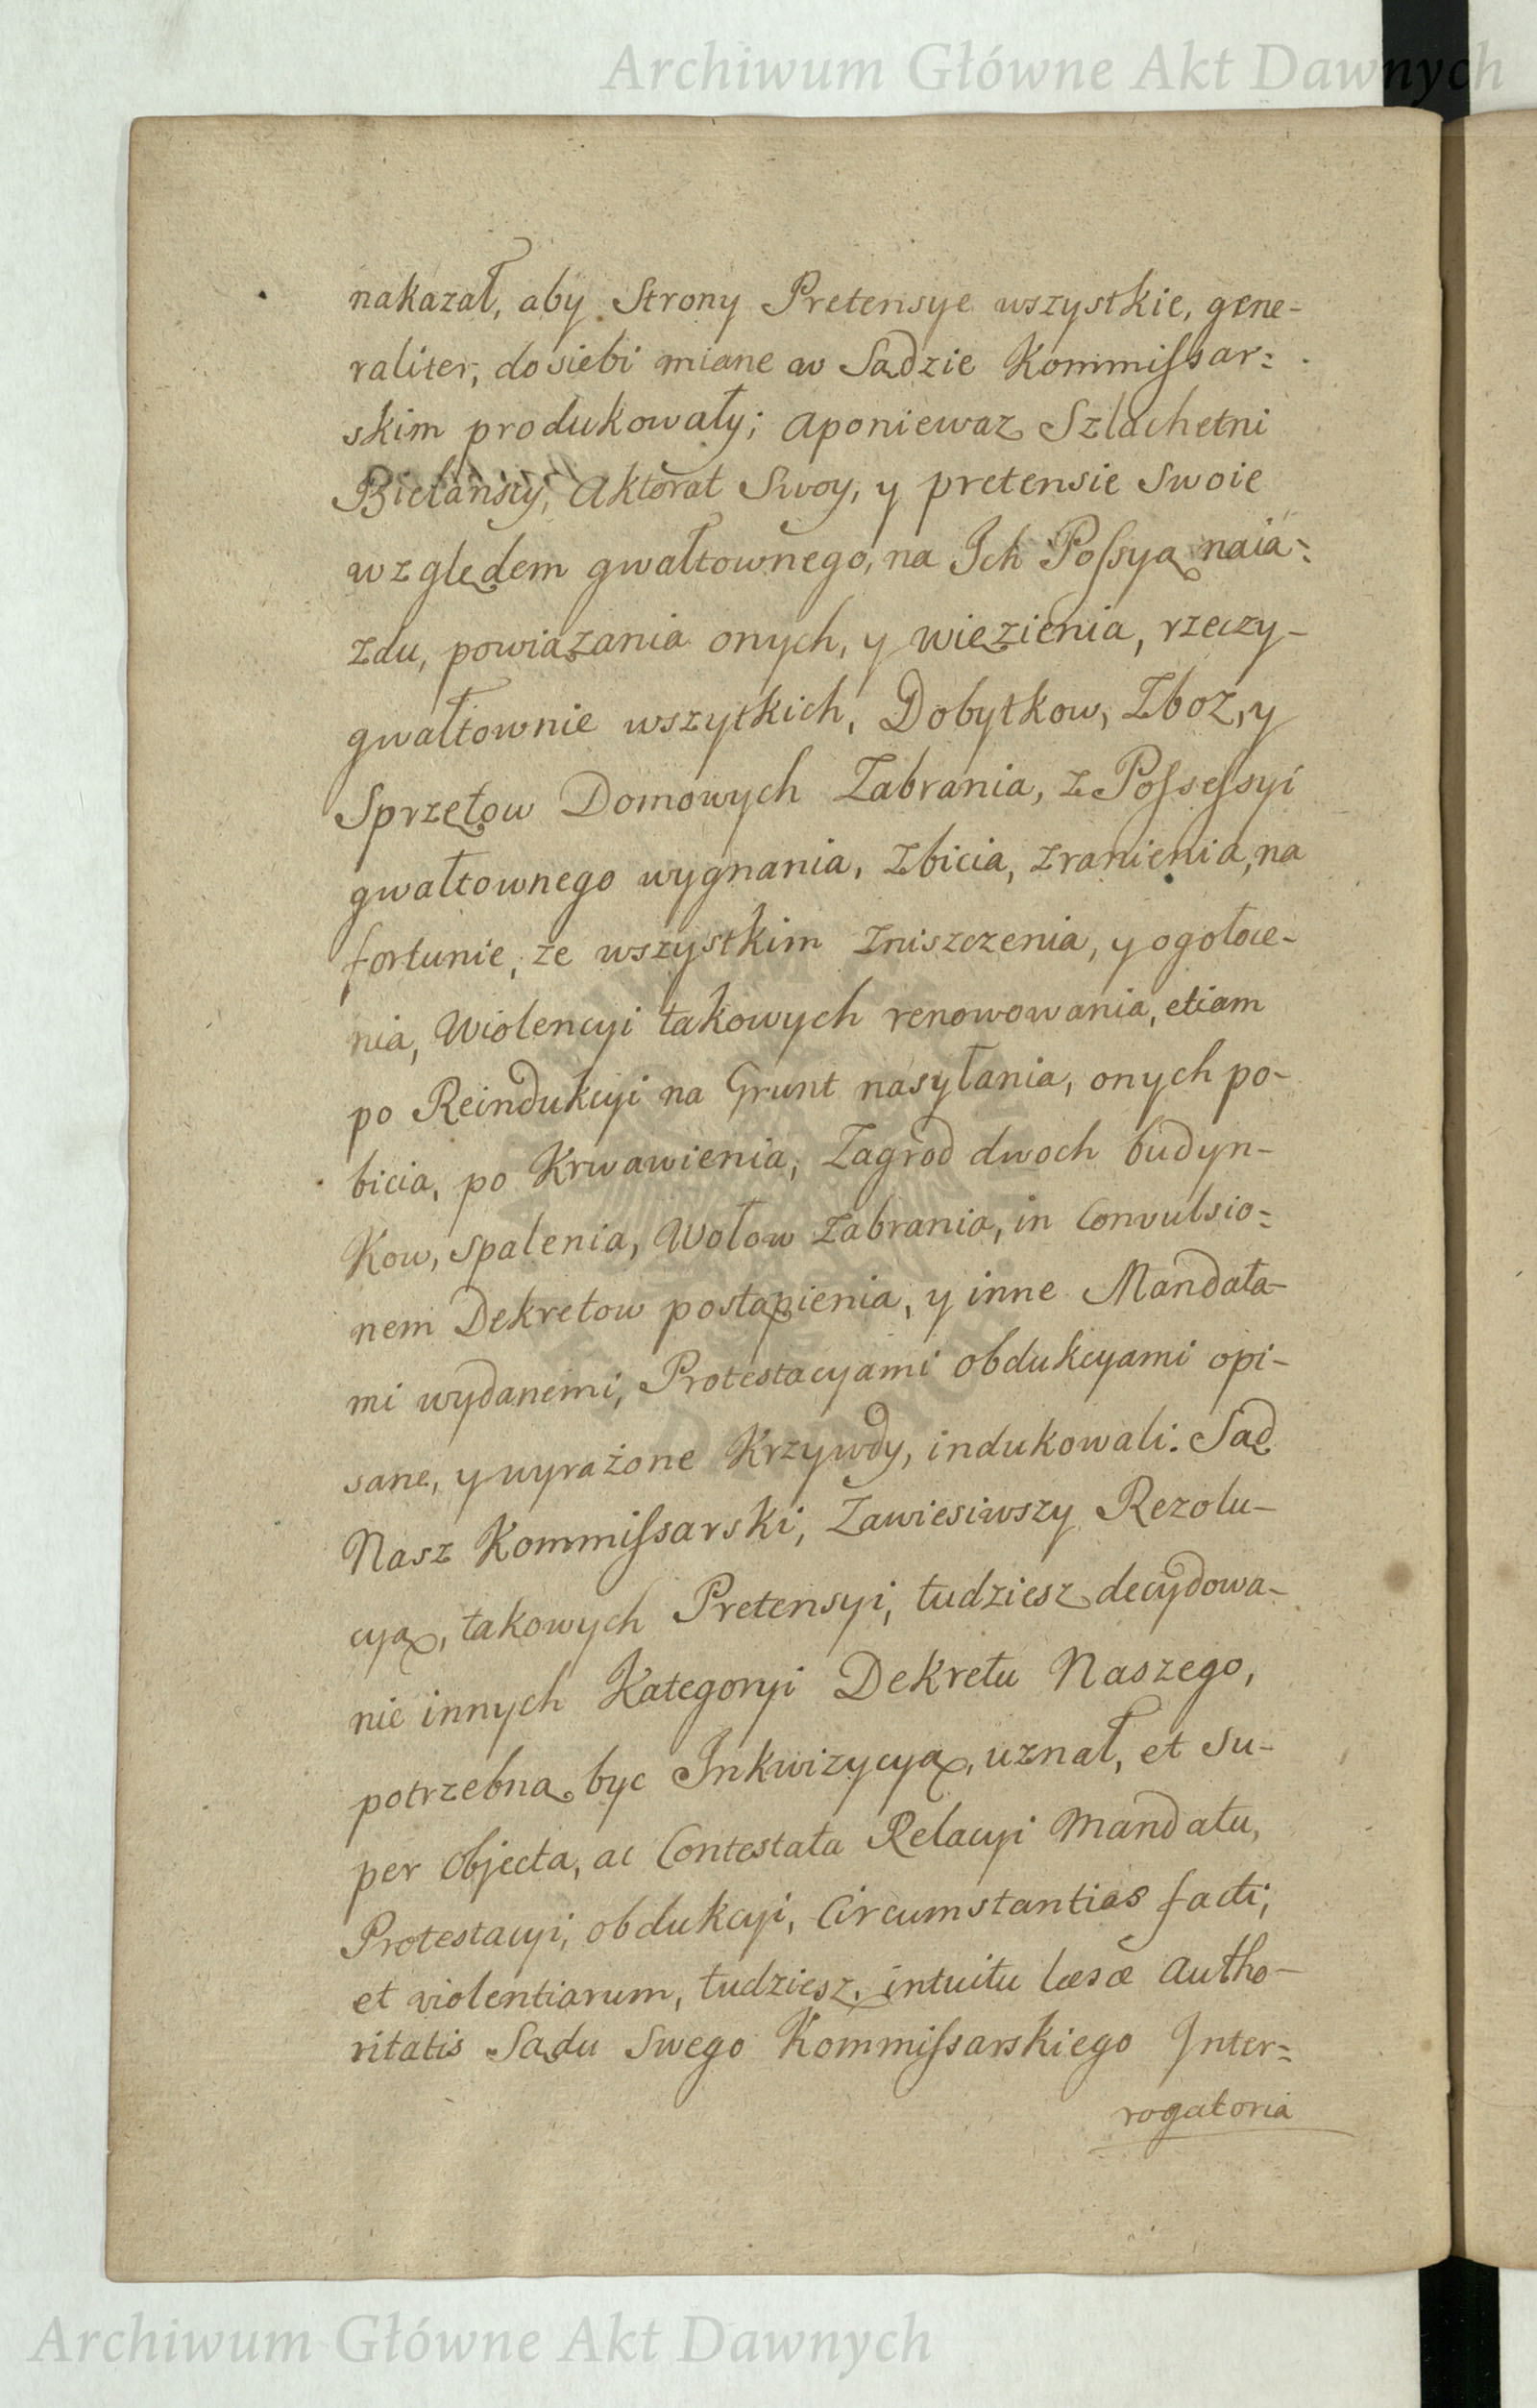 Archiwum Główne Akt Dawnych
nakazał, aby Strony Pretensye wszystkie, gene-
raliter, do siebi miane w Sądzie Kommiſsar=
skim produkowały; aponiewaz Szlachetni
Bielanscy, Aktorat Swoy, y pretensie Swoie
względem gwałtownego, na Ich Poſsyą naia=
zdu, powiązania onych, y więzienia, rzeczy-
gwałtownie wszytkich, Dobytkow, Zboz, y
Sprzętow Domowych Zabrania, z Poſseſsyi
gwałtownego wygnania, Zbicia, zranienia, na
fortunie, ze wszystkim zniszczenia, y ogołoce-
nia, Wiolencyi takowych renowowania, etiam
po Reindukcyi na Grunt nasyłania, onych po-
bicia, po Krwawienia, Zagrod dwoch budyn-
Kow, spalenia, Wołow zabrania, in Convulsio=
nem Dekretow postąpienia, y inne Mandata-
mi wydanemi, Protestacyami obdukcyami opi-
sane, y wyrażone Krzywdy, indukowali. Sąd
Nasz Kommiſsarski, Zawiesiwszy Rezolu-
cyą, takowych Pretensyi, tudziesz decydowa-
nie innych Kategoryi Dekretu Naszego,
potrzebną byc Inkwizycyą, uznał, et su-
per objecta, ac Contestata Relacyi Mandatu,
Protestacyi, obdukcyi, Circumstantias facti,
et violentiarum, tudziesz, intuitu læsæ Autho-
ritatis Sądu Swego Kommiſsarskiego Inter=
rogatoria
Archiwum Główne Akt Dawnych